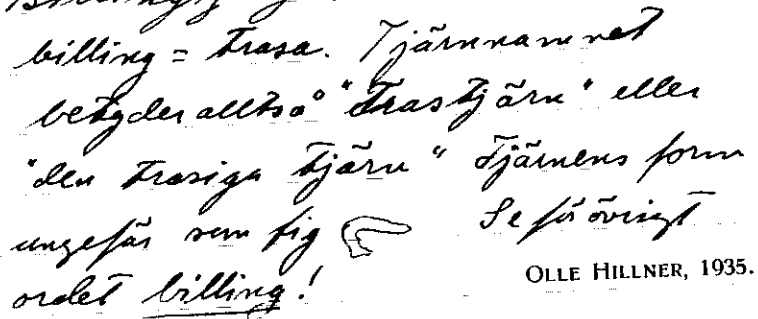 billing = trasa. Tjärnnamnet
betyder alltså "Trastjärn" eller
"den trasiga tjärn" Tjärnens form
ungefär som fig Se för övrigt
ordet billing!
OLLE HILLNER, 1935.